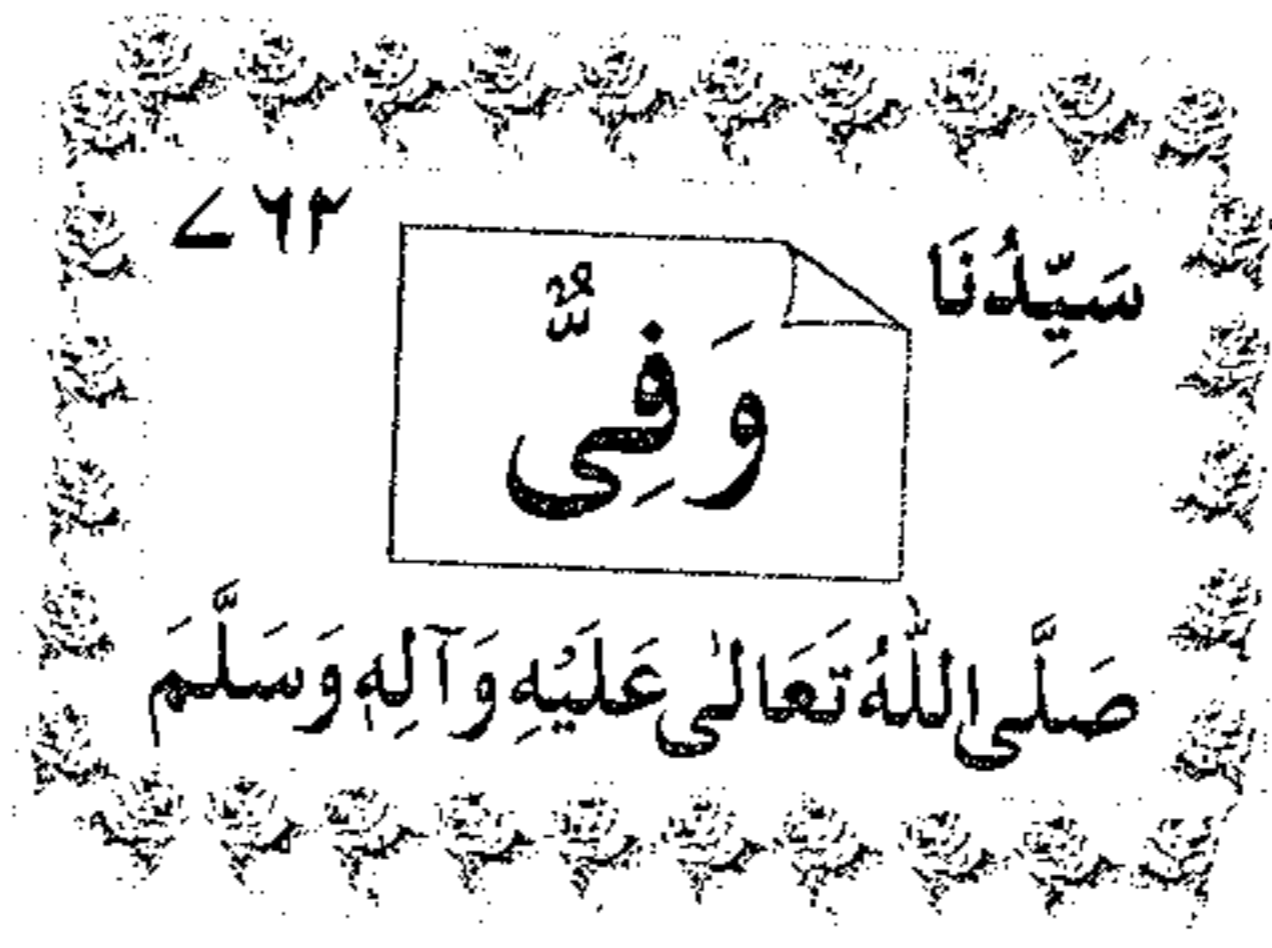 سَيِّدُنَا ۷۶۲
وَفِیٌّ
صَلَّى اللّٰهُ تَعَالٰى عَلَيْهِ وَآلِهٖ وَسَلَّمَ